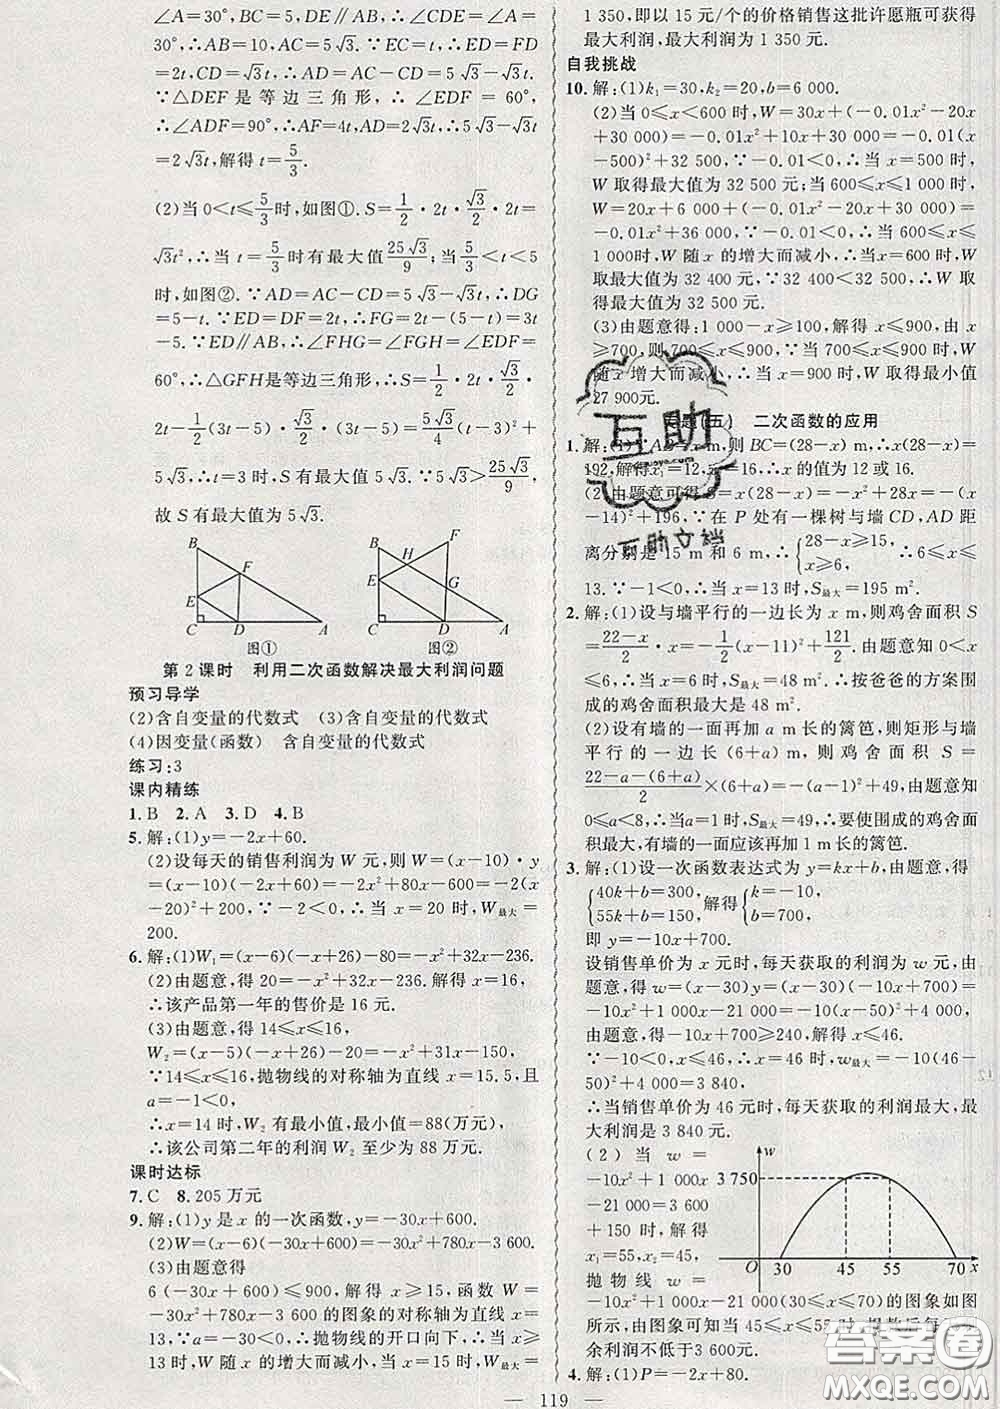 ∠A=30°,∵EF∥AC,∴∠CDE=∠A=
30°,∴AB=10,AC=5√3.∵DE=ED=FD
=2t,CD=√3t,∴CD=√3t=2√3t.
∵△DEF是等边三角形,∴∠EDF=60°,
∴∠ADF=90°,∴AF=4t,AD=2√3t,∴5√3-√3t
=2√3t,解得t=5/3.
(2)当0<t≤5/3时,如图①.S=1/2·2t·√3/2·2t=
√3t²,∴当t=5/3时有最大值25√3/9;当5/3<t<5
时,如图②.∵AD=AC-CD=5√3-√3t,∴DG
=5-t.∵ED=DF=2t,∴FG=2t-(5-t)=3t
-5.∵ED∥AB,∴∠FHG=∠FGH=∠EDF=
60°,∴△GFH是等边三角形,∴S=1/2·2t·√3/2·
2t-1/2(3t-5)·√3/2(3t-5)=-5√3/4(t-3)²+
5√3,∴当t=3时,S有最大值5√3.∵5√3>25√3/9,
故S有最大值为5√3.
B F E C D A 图①
B H F E G C D A 图②
第2课时 利用二次函数解决最大利润问题
预习导学
(2)含自变量的代数式 (3)含自变量的代数式
(4)因变量(函数) 含自变量的代数式
练习:3
课内精练
1.B 2.A 3.D 4.B
5.解:(1)y=-2x+60.
(2)设每天的销售利润为W元,则W=(x-10)·y
=(x-10)(-2x+60)=-2x²+80x-600=-2(x
-20)²+200,∵-2<0,∴当x=20时,W最大=
200.
6.解:(1)W₁=(x-6)(-x+26)-80=-x²+32x-236.
(2)由题意,得20=-x²+32x-236.解得x=16,
∴该产品第一年的售价是16元.
(3)由题意,得14≤x≤16,
W₂=(x-5)(-x+26)-20=-x²+31x-150,
∵14≤x≤16,抛物线的对称轴为直线x=15.5,且
a=-1<0,
∴x=14时,W₂有最小值,最小值=88(万元),
∴该公司第二年的利润W₂至少为88万元.
课时达标
7.C 8.205万元
9.解:(1)y是x的一次函数,y=-30x+600.
(2)W=(x-6)(-30x+600)=-30x²+780x-3 600.
(3)由题意得
6(-30x+600)≤900,解得x≥15,函数W=
-30x²+780x-3 600的图象的对称轴为直线x=
13,∵a=-30<0,∴抛物线的开口向下,当x≥
13时,W随x的增大而减小,当x=15时,W最大=
1 350,即以15元/个的价格销售这批许愿瓶可获得
最大利润,最大利润为1 350元.
自我挑战
10.解:(1)k₁=30,k₂=20,b=6 000.
(2)当0≤x<600时,W=30x+(-0.01x²-20x
+30 000)=-0.01x²+10x+30 000=-0.01(x
-500)²+32 500,∵-0.01<0,∴当x=500时,
W取得最大值为32 500元;当600≤x≤1 000时,
W=20x+6 000+(-0.01x²-20x+30 000)=
-0.01x²+36 000,∵-0.01<0,∴当600≤x≤
1 000时,W随x的增大而减小,∴当x=600时,W
取最大值为32 400元,∵32 400<32 500,∴W取
得最大值为32 500元.
(3)由题意得:1 000-x≥100,解得x≤900,由x
≥700,则700≤x≤900,∵当700≤x≤900时,W
随x增大而减小,∴当x=900时,W取得最小值
27 900元.
专题(五) 二次函数的应用
1.解:(1)∵AB=x m,则BC=(28-x) m,∴x(28-x)=
192,解得x₁=12,x₂=16,∴x的值为12或16.
(2)由题意可得S=x(28-x)=-x²+28x=-(x
-14)²+196,∵在P处有一棵树与墙CD,AD距
离分别是15 m和6 m,∴{28-x≥15, x≥6,∴6≤x≤
13.∵-1<0,∴当x=13时,S最大=195 m².
2.解:(1)设与墙平行的一边长为x m,则鸡舍面积S
=(22-x)/2·x=-1/2(x-11)²+121/2,由题意知0<x
≤6,∴当x=6时,S最大=48 m²,∴按爸爸的方案围
成的鸡舍面积最大是48 m².
(2)设有墙的一面再加a m长的篱笆,则矩形与墙
平行的一边长(6+a)m,则鸡舍面积S=
(22-a-(6+a))/2×(6+a)=-(a-1)²+49,由题意知
0≤a<8,∴当a=1时,S最大=49,∴要使围成的鸡舍面
积最大,有墙的一面应该再加1 m长的篱笆.
3.解:(1)设一次函数表达式为y=kx+b,由题意,得
{40k+b=300, 55k+b=150,解得{k=-10, b=700,
即y=-10x+700.
设销售单价为x元时,每天获取的利润为w元,由题
意,得w=(x-30)y=(x-30)(-10x+700)=
-10x²+1 000x-21 000=-10(x-50)²+4 000,
由题意,得-10x+700≥240,解得x≤46.
∵-10<0,x≤46,∴当x=46时,w最大=
-10(46-50)²+4 000=3 840,
∴当销售单价为46元时,每天获取的利润最大,最
大利润是3 840元.
(2)当w=
-10x²+1 000x
-21 000=3 600
+150时,解得
x₁=55,x₂=45,
抛物线w=
w 3 750 O 30 45 55 70 x
-10x²+1 000x-21 000(30≤x≤70)的图象如图
所示,由图象可知当45≤x≤55时,捐款后每天剩
余利润不低于3 600元.
4.解:(1)P=-2x+80.
— 119 —
互助
互助文档
答案圈
MXQE.COM